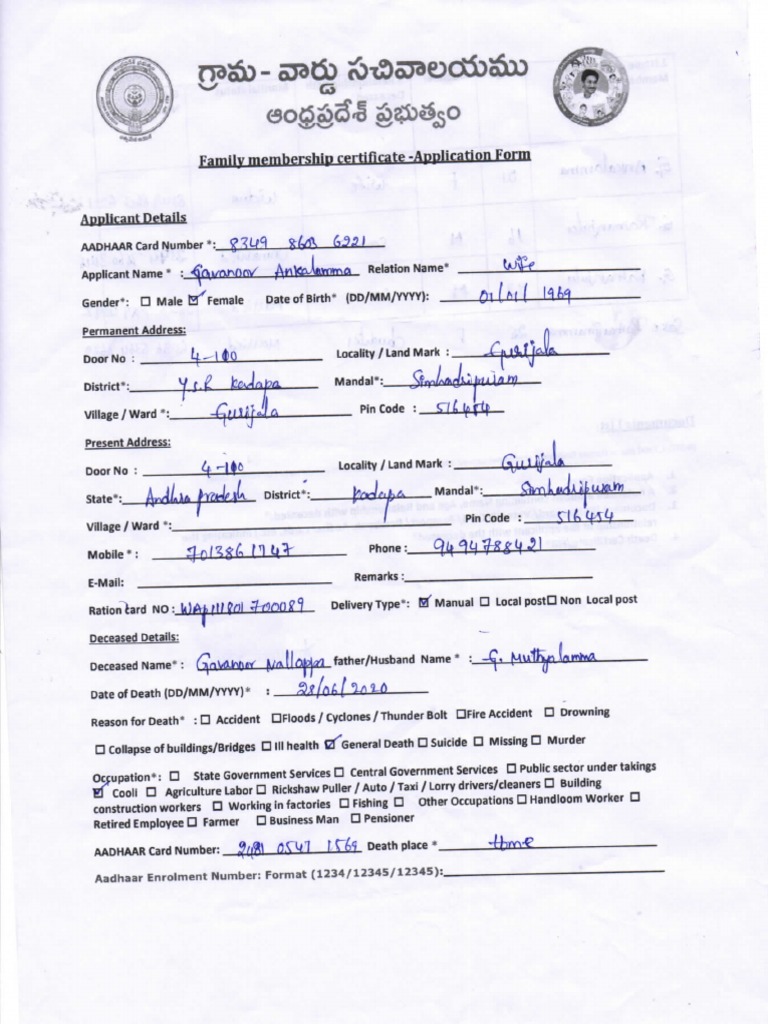 గ్రామ - వార్డు సచివాలయము
ఆంధ్రప్రదేశ్ ప్రభుత్వం
Family membership certificate -Application Form
Applicant Details
AADHAAR Card Number *: 8349 8603 6221
Applicant Name * : Gavanoor Ankalamma Relation Name* wife
Gender*: ☐ Male ☑ Female Date of Birth* (DD/MM/YYYY): 01/01/1969
Permanent Address:
Door No : 4-100 Locality / Land Mark : Gurijala
District*: Y.S.R Kadapa Mandal*: Simhadripuram
Village / Ward *: Gurijala Pin Code : 516454
Present Address:
Door No : 4-100 Locality / Land Mark : Gurijala
State*: Andhra pradesh District*: Kadapa Mandal*: Simhadripuram
Village / Ward *: Pin Code : 516454
Mobile * : 7013861747 Phone : 9494788421
E-Mail: Remarks :
Ration card NO : WAP111801700089 Delivery Type*: ☑ Manual ☐ Local post ☐ Non Local post
Deceased Details:
Deceased Name* : Gavanoor Nallappa father/Husband Name * : G. Muthyalamma
Date of Death (DD/MM/YYYY)* : 28/06/2020
Reason for Death* : ☐ Accident ☐ Floods / Cyclones / Thunder Bolt ☐ Fire Accident ☐ Drowning
☐ Collapse of buildings/Bridges ☐ Ill health ☑ General Death ☐ Suicide ☐ Missing ☐ Murder
Occupation*: ☐ State Government Services ☐ Central Government Services ☐ Public sector under takings
☑ Cooli ☐ Agriculture Labor ☐ Rickshaw Puller / Auto / Taxi / Lorry drivers/cleaners ☐ Building
construction workers ☐ Working in factories ☐ Fishing ☐ Other Occupations ☐ Handloom Worker ☐
Retired Employee ☐ Farmer ☐ Business Man ☐ Pensioner
AADHAAR Card Number: 0547 1569 Death place * Home
Aadhaar Enrolment Number: Format (1234/12345/12345):